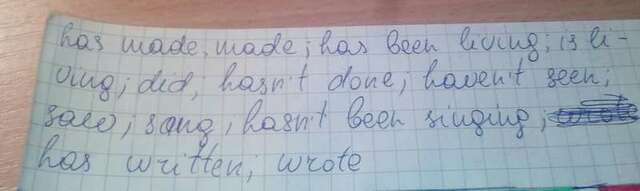 has made, made; has been living; is li-
ving; did, hasn't done; haven't seen;
saw; sang, hasn't been singing;
has written; wrote